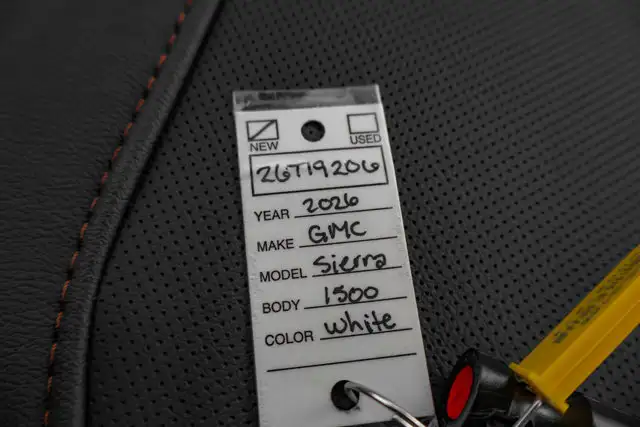 NEW USED
26T19206
YEAR 2026
MAKE GMC
MODEL Sierra
BODY 1500
COLOR white